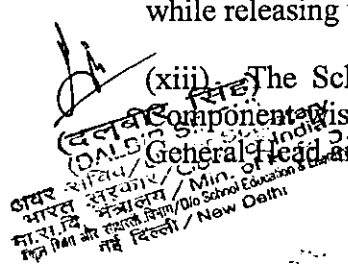 while releasing
(xiii) The Scl
Component wis
General Head a
(दलबीर सिंह)
(DALBIR S
अवर सचिव /
भारत सरकार /
मा.सं.वि. मंत्रालय / Min. of
स्कूल शिक्षा और साक्षरता विभाग/D/o School Education &
नई दिल्ली / New Delhi